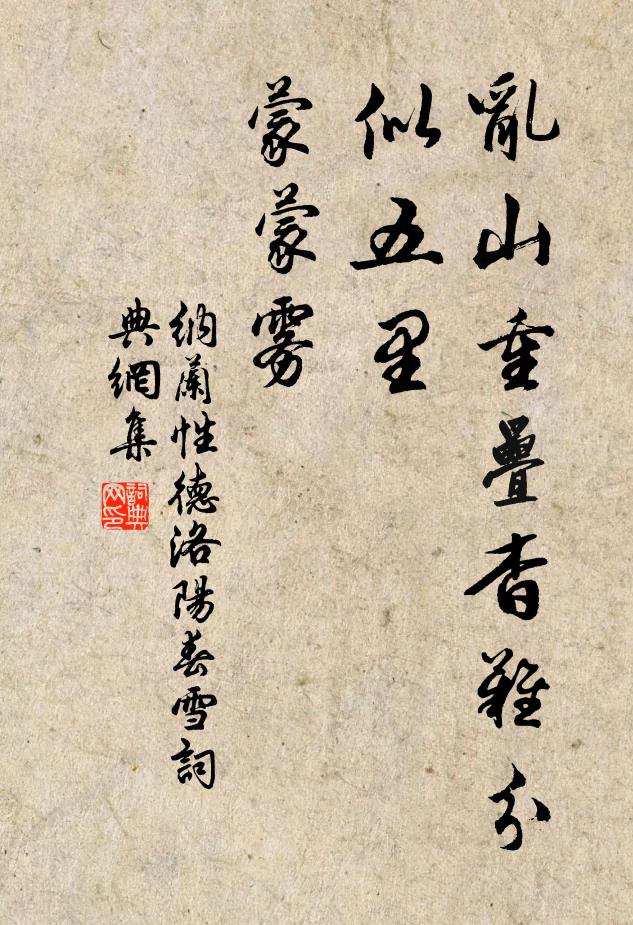 亂山重疊杳難分
似五里
蒙蒙霧
納蘭性德洛陽春雪詞
典網集
詞典
网印